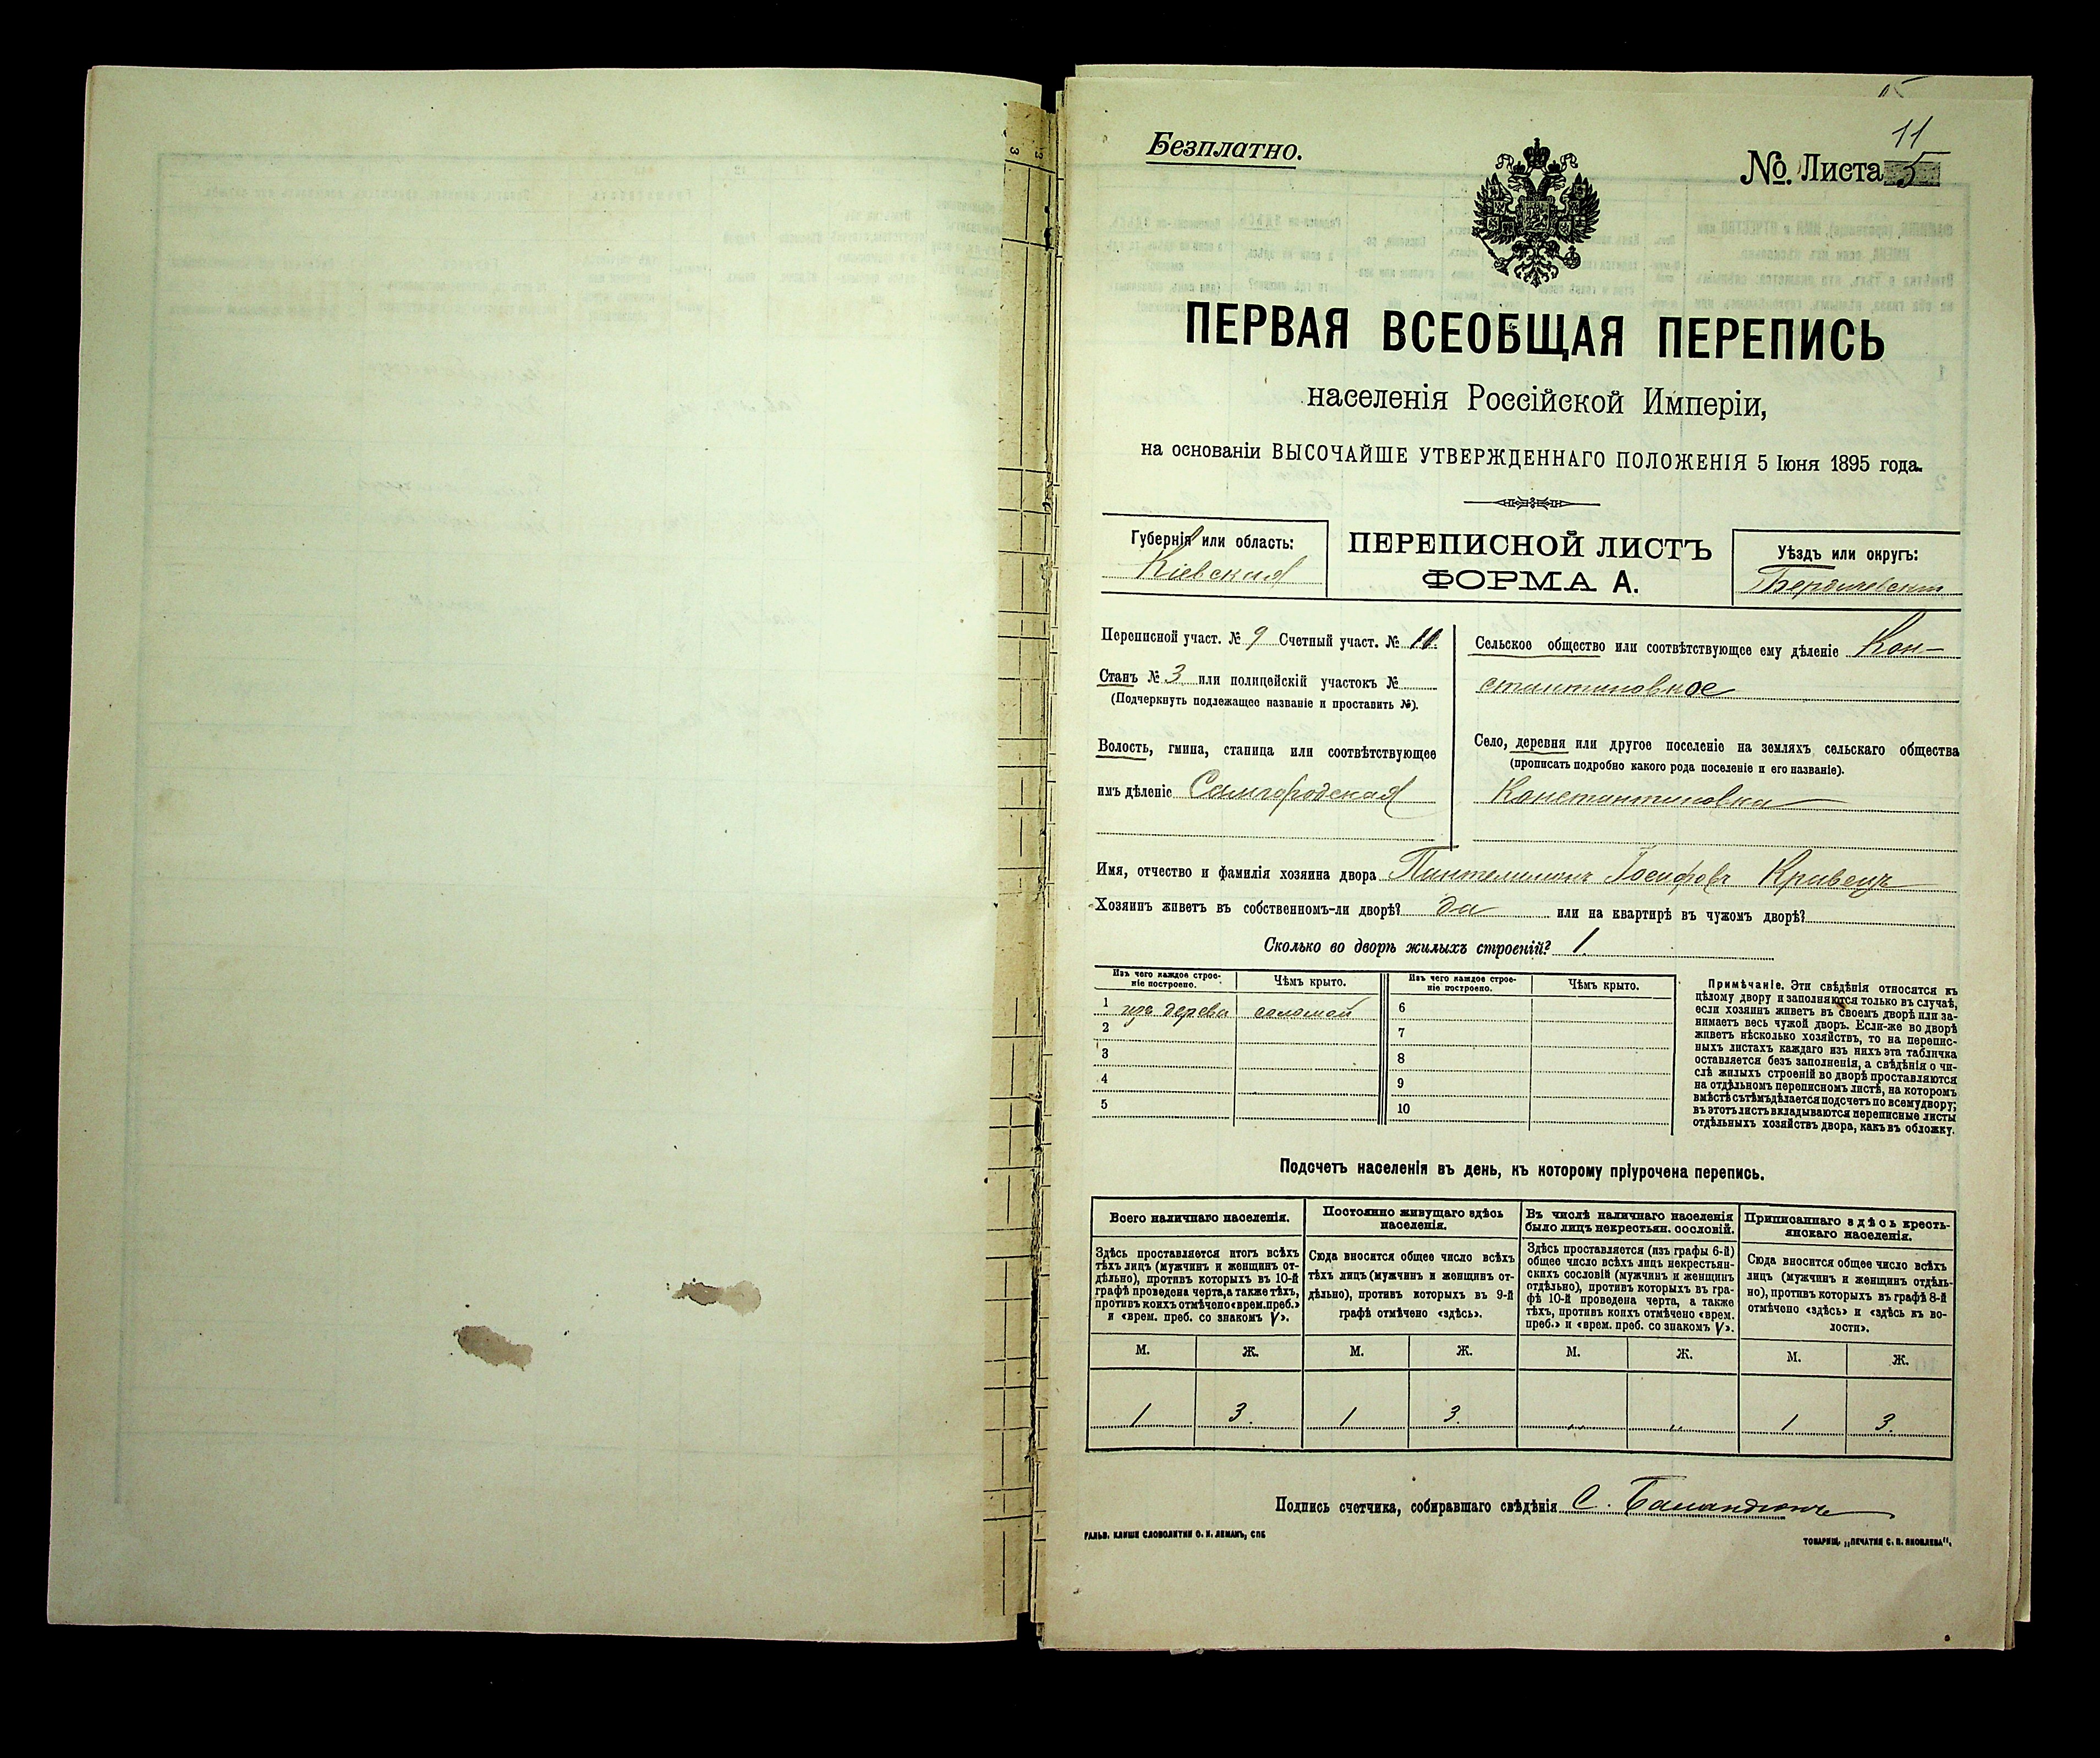 Безплатно.
11
№ Листа 5
ПЕРВАЯ ВСЕОБЩАЯ ПЕРЕПИСЬ
населенія Россійской Имперіи,
на основаніи ВЫСОЧАЙШЕ УТВЕРЖДЕННАГО ПОЛОЖЕНІЯ 5 Іюня 1895 года.
Губернія или область:
Кіевская
ПЕРЕПИСНОЙ ЛИСТЪ
ФОРМА А.
Уѣздъ или округъ:
Бердичевскій
Переписной участ. № 9 Счетный участ. № 11.
Станъ № 3 или полицейскій участокъ №
(Подчеркнуть подлежащее названіе и проставить №).
Волость, гмина, станица или соотвѣтствующее
имъ дѣленіе Самгородская
Сельское общество или соотвѣтствующее ему дѣленіе Кон-
стантиновкое
Село, деревня или другое поселеніе на земляхъ сельскаго общества
(прописать подробно какого рода поселеніе и его названіе).
Константиновка
Имя, отчество и фамилія хозяина двора Пантелимонъ Іосифовъ Кривецъ
Хозяинъ живетъ въ собственномъ-ли дворѣ? да или на квартирѣ въ чужомъ дворѣ?
Сколько во дворѣ жилыхъ строеній? 1.
Изъ чего каждое строе-
ніе построено.
Чѣмъ крыто.
Изъ чего каждое строе-
ніе построено.
Чѣмъ крыто.
1 изъ дерева соломой 6
2 7
3 8
4 9
5 10
Примѣчаніе. Эти свѣдѣнія относятся къ
цѣлому двору и заполняются только въ случаѣ,
если хозяинъ живетъ въ своемъ дворѣ или за-
нимаетъ весь чужой дворъ. Если-же во дворѣ
живетъ нѣсколько хозяйствъ, то на перепис-
ныхъ листахъ каждаго изъ нихъ эта табличка
оставляется безъ заполненія, а свѣдѣнія о чи-
слѣ жилыхъ строеній во дворѣ проставляются
на отдѣльномъ переписномъ листѣ, на которомъ
вмѣстѣ съ тѣмъ дѣлается подсчетъ по всему двору;
въ этотъ листъ вкладываются переписные листы
отдѣльныхъ хозяйствъ двора, какъ въ обложку.
Подсчетъ населенія въ день, къ которому пріурочена перепись.
Всего наличнаго населенія.
Здѣсь проставляется итогъ всѣхъ
тѣхъ лицъ (мужчинъ и женщинъ от-
дѣльно), противъ которыхъ въ 10-й
графѣ проведена черта, а также тѣхъ,
противъ коихъ отмѣчено «врем. преб.»
и «врем. преб. со знакомъ V».
Постоянно живущаго здѣсь
населенія.
Сюда вносится общее число всѣхъ
тѣхъ лицъ (мужчинъ и женщинъ от-
дѣльно), противъ которыхъ въ 9-й
графѣ отмѣчено «здѣсь».
Въ числѣ наличнаго населенія
было лицъ некрестьян. сословій.
Здѣсь проставляется (изъ графы 6-й)
общее число всѣхъ лицъ некрестьян-
скихъ сословій (мужчинъ и женщинъ
отдѣльно), противъ которыхъ въ гра-
фѣ 10-й проведена черта, а также
тѣхъ, противъ коихъ отмѣчено «врем.
преб.» и «врем. преб. со знакомъ V».
Приписаннаго здѣсь кресть-
янскаго населенія.
Сюда вносится общее число всѣхъ
лицъ (мужчинъ и женщинъ отдѣль-
но), противъ которыхъ въ графѣ 8-й
отмѣчено «здѣсь» и «здѣсь къ во-
лости».
М. Ж. М. Ж. М. Ж. М. Ж.
1 3. 1 3. „ „ 1 3.
Подпись счетчика, собиравшаго свѣдѣнія С.
ГАЛЬВ. КЛИШЕ СЛОВОЛИТНИ О. И. ЛЕМАНЪ, СПБ
ТОВАРИЩ. „ПЕЧАТНЯ С. П. ЯКОВЛЕВА“.